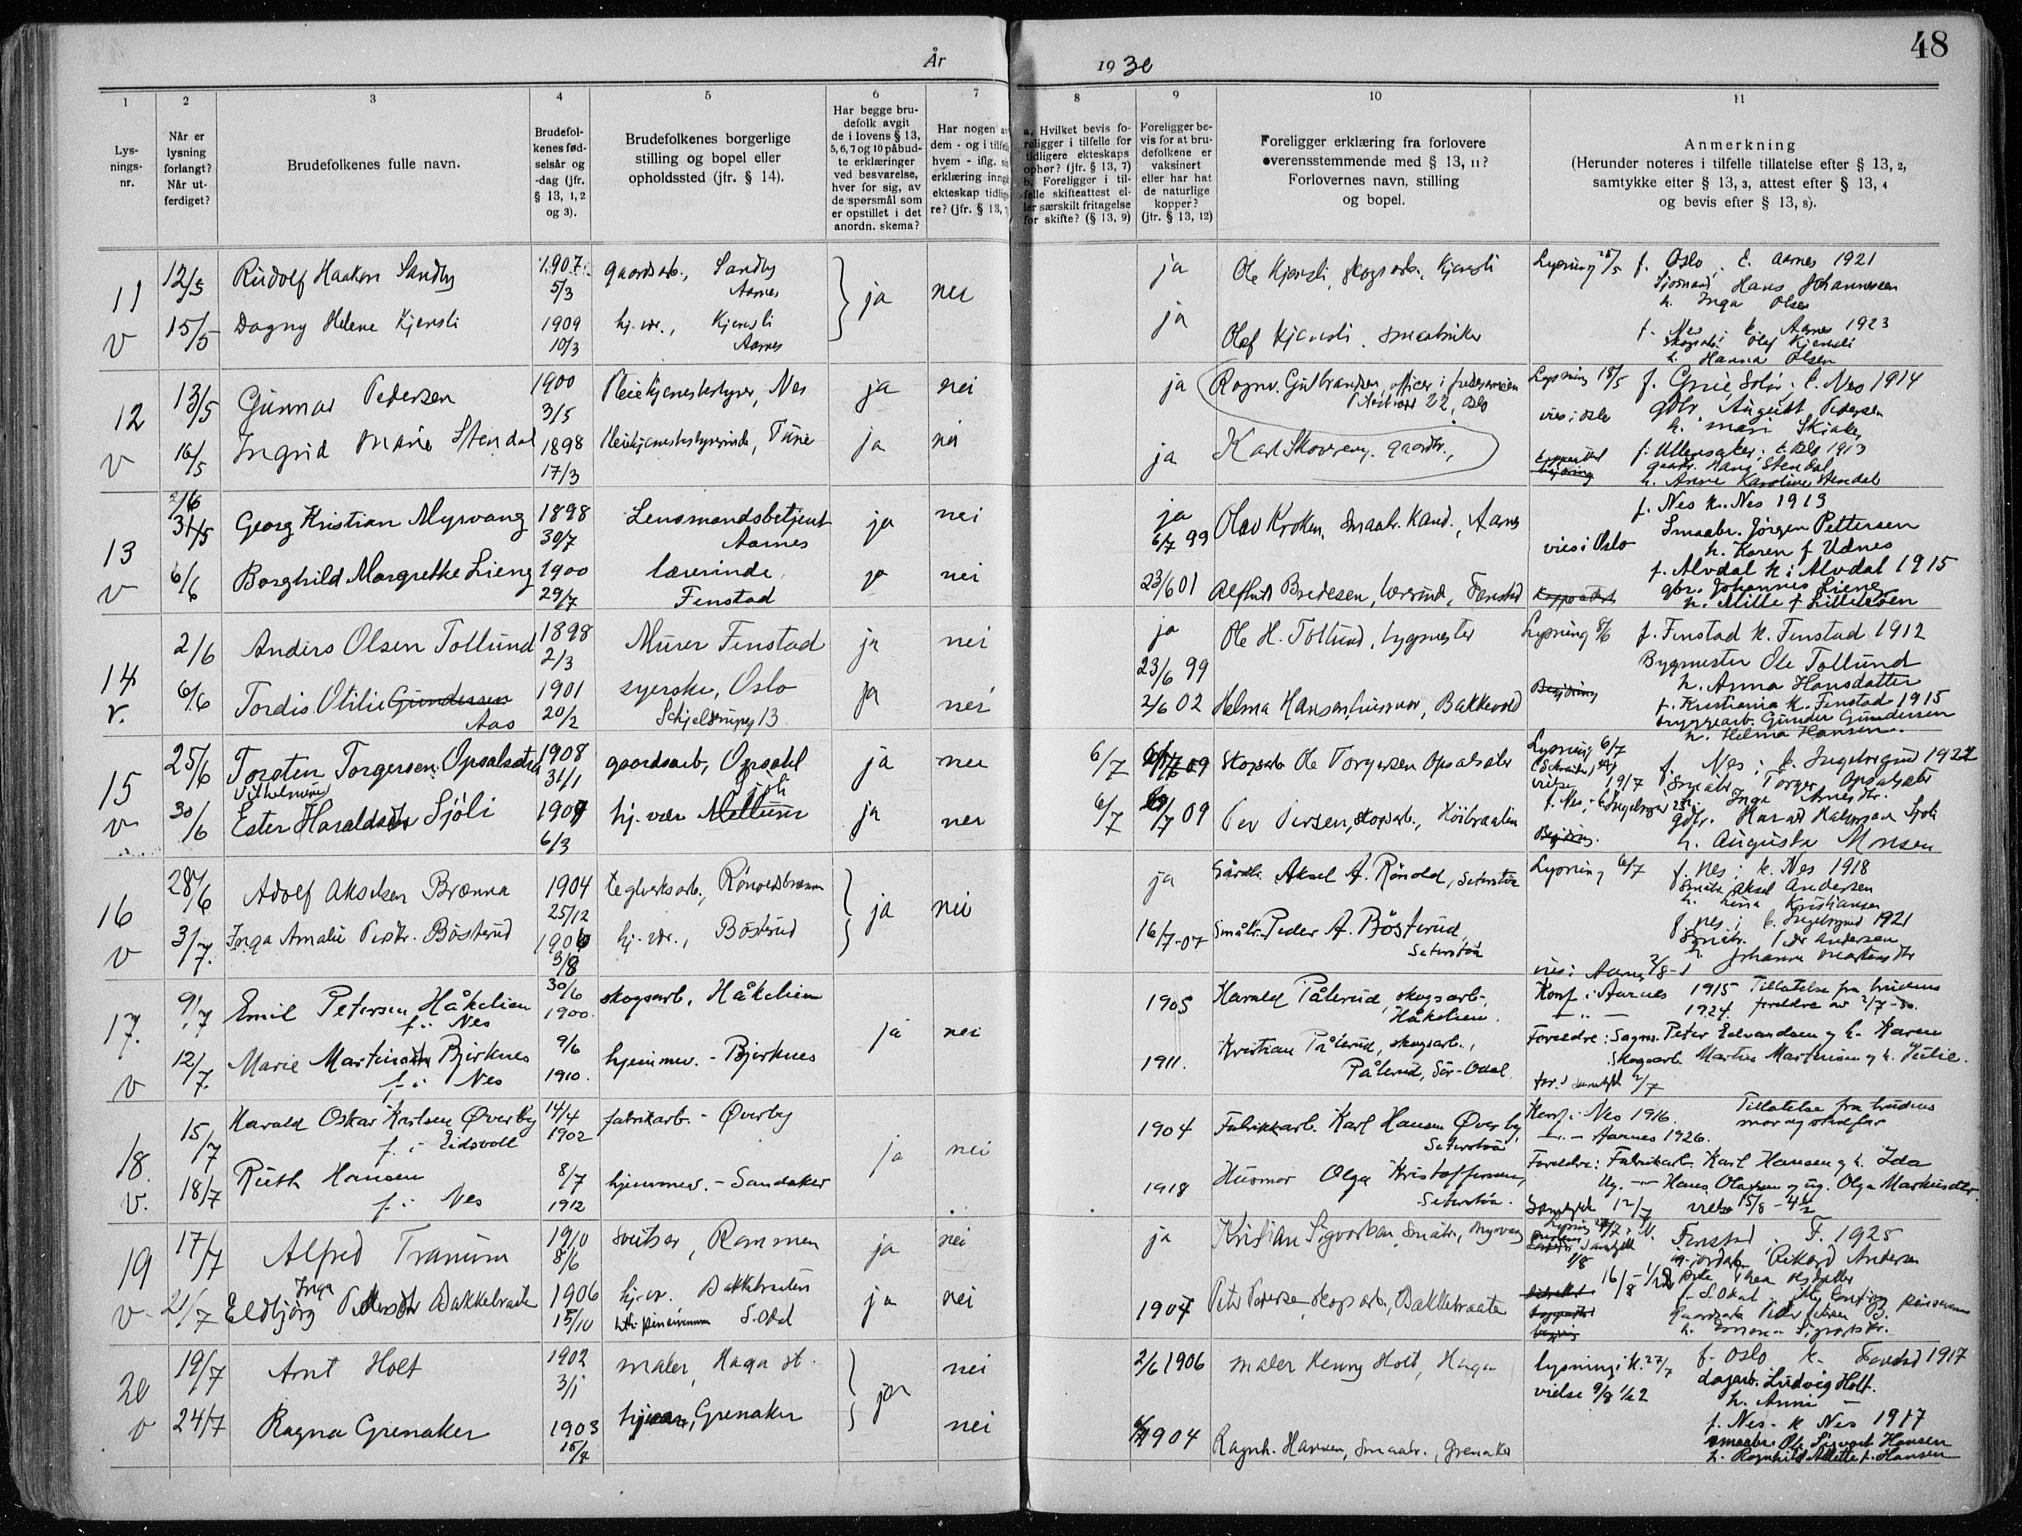 48
År 1930
1 2 3 4 5 6 7 8 9 10 11
Lys-
nings-
nr.
Når er
lysning
forlangt?
Når ut-
ferdiget?
Brudefolkenes fulle navn.
Brudefol-
kenes fød-
selsår og
-dag (jfr.
§ 13, 1, 2
og 3).
Brudefolkenes borgerlige
stilling og bopel eller
opholdssted (jfr. § 14).
Har begge bru-
defolk avgit
de i lovens § 13,
5, 6, 7 og 10 påbud-
te erklæringer
ved besvarelse,
hver for sig, av
de spørsmål som
er opstillet i det
anordn. skema?
Har nogen av
dem - og i tilfelle
hvem - iflg. sin
erklæring inngå
ekteskap tidlige
re? (jfr. § 13,
a. Hvilket bevis fo-
religger i tilfelle for
tidligere ekteskaps
ophør? (jfr. § 13, 7)
b. Foreligger i til-
felle skifteattest el-
ler særskilt fritagelse
for skifte? (§ 13, 9)
Foreligger be-
vis for at bru-
defolkene er
vaksinert
eller har hat
de naturlige
kopper?
(jfr. § 13, 12)
Foreligger erklæring fra forlovere
overensstemmende med § 13, 11?
Forlovernes navn, stilling
og bopel.
Anmerkning
(Herunder noteres i tilfelle tillatelse efter § 13, 2,
samtykke efter § 13, 3, attest efter § 13, 4
og bevis efter § 13, 8).
11 12/5 Rudolf Haakon Sandby 1907 5/3 gaardsarb., Sandby Aarnes ja nei ja Ole Kjensli, skogsarb. Kjensli Lysning 25/5 f. Oslo, k. Aarnes 1921
Sjømand Hans Johannesen
h. Inga Olsen
v 15/5 Dagny Helene Kjensli 1909 10/3 hj. vr., Kjensli Aarnes ja Olaf Kjensli, smaabruker f. Nes k. Aarnes 1923
skogsarb. Olaf Kjensli
h. Hanna Olsen
12 13/5 Gunnar Pedersen 1900 3/5 Pleiehjemsbestyrer, Nes ja nei ja Ragnv. Gulbrandsen, officer i frelsesarmeen
22, Oslo Lysning 18/5 f. Grue, Solør, k. Nes 1914
vies i Oslo gbr. August Pedersen
h. Mari Skiaker
v 16/5 Ingrid Marie Stendal 1898 17/3 Pleiehjemsbestyrerinde, Tune ja nei ja Karl Skovreng, gaardbr., f. Ullensaker, k. Oslo 1913
gaardbr. Hans Stendal
h. Anne Karoline Stendal
13 2/6 31/5 Georg Kristian Myrvang 1898 30/7 Lensmandsbetjent Aarnes ja nei ja 6/7 99 Olav Kroken, smaabr. Kand., Aarnes f. Nes k. Nes 1913
Smaabr. Jørgen Pettersen
vies i Oslo h. Karen f Udnes
v 6/6 Borghild Margrethe Lieng 1900 29/7 lærerinde, Fenstad ja nei 23/6 01 Bredesen, lærerind., Fenstad Koppeattest f. Alvdal k i Alvdal 1915
gbr. Johannes Lieng
h. Mille f Lilleeven
14 2/6 Anders Olsen Tollund 1898 2/3 Murer Fenstad ja nei ja 23/6 99 Ole H. Tollund, bygmester Lysning 8/6 f. Fenstad k. Fenstad 1912
Bygmester Ole Tollund
h. Anna Hansdatter
v. 6/6 Tordis Otilie Gundersen Aas 1901 20/2 syerske, Oslo
Schjelderupsg 13. ja nei 2/6 02 Helma Hansen, husmor, Bakkevold f. Kristiania k. Fenstad 1915
bryggearb. Gunder Gundersen
h. Helma Hansen.
15 25/6 Torsten Torgersen Opsalsæter 1908 31/1 gaardsarb, Opsahl ja nei 6/7 09 Skogsarb Ole Torgersen Opsalsæter Lysning 6/7 f. Nes; k. Ingeborgrud 1922
Smaabr Torger Opsalsæter
vielse 19/7 h. Inga Arnesdtr.
v 30/6 Vilhelmine
Ester Haraldsdtr Sjöli 1909 6/3 hj. vær Mellum Sjöli ja nei 6/7 09 Per Persen, skogsarb., Höibraaten gbr. Harald Halvorsen Sjöli
h. Augusta Monsen
16 28/6 Adolf Akselsen Brænna 1904 25/12 teglverksarb., Rönoldsbrænna ja nei ja Gårdbr. Aksel A. Rönold, Seterstöa Lysning 6/7 f. Nes; k. Nes 1918
Småbr. Aksel Andersen
h. Lina Kristiansen
v 3/7. Inga Amalie Pedtr. Bösterud 1906 3/8 hj. vr., Bösterud 16/7-07 Småbr. Peder A. Bösterud, Seterstöa f. Nes; k. Ingeborgrud 1921
Småbr. Peder Andersen
h. Johanne Martensdtr
17. 9/7 Emil Petersen Håkelien
f. i Nes 30/6 1900. skogsarb, Håkelien ja nei 1905 Harald Pålerud, skogsarb., Håkelien. vies i Aarnes 2/8-1
Konf. i Aarnes 1915 Tillatelse fra brudens
— " — 1924. foreldre av 2/7-30.
v 12/7. Marie Martinsdtr Bjerknes
f. i Nes 9/6 1910. hjemmev. - Bjerknes 1911. Kristian Pålerud, skogsarb.,
Pålerud, Sör-Odal. Foreldre: Sagm. Peter Edvardsen og h. Karen
Skogsarb. Martin Martinsen og h. Julie.
18. 15/7 Harald Oskar Karlsen Øverby
f. i Eidsvoll 14/4 1902 fabrikarb. - Øverby ja nei 1904 Fabrikkarb. Karl Hansen Øverby, Seterstöa Konf. i Nes 1916. Tillatelse fra brudens
— " — Aarnes 1926. mor og stedfar
v. 18/7 Ruth Hansen
f. i Nes 8/7 1912 hjemmev. - Sandaker 1918 Husmor Olga Kristoffersen, Seterstöa. Foreldre: Fabrikarb. Karl Hansen og h. Ida
Ug. — Hans Olafsen og ug. Olga Markusdtr.
Samtykke 12/7 vielse 15/8 - 4½
19 17/7 Alfred Tranum 1910 8/6 sveitser, Rammen ja nei ja Kristian Sigvartsen, småbr., Myrvang Fenstad F. 1925
Rikard Andersen
v. 21/7 Inga
Eldbjörg Pedersdtr Bakkebraaten 1906 15/10 hj. vr. Bakkebraaten S. Odal ja nei 1907 Peter Pedersen skogsarb., Bakkebraaten 16/8
20 19/7 Arnt Holt 1902 3/1 maler, Haga st. ja nei 2/6 1906 maler Henry Holt, Haga lysning i k. 27/7 f. Oslo k. Fenstad 1917
vielse 9/8 1/22 dagarb. Ludvig Holt.
h. Anni —
v 24/7 Ragna Grenaker 1903 15/7 hjem, Grenaker nei 1904 Ragnh. Hansen, smaabr., Grenaker f. Nes - k Nes 1917
smaabr. Ole Sigvart Hansen
h. Ragnhild Alette f. Hansen